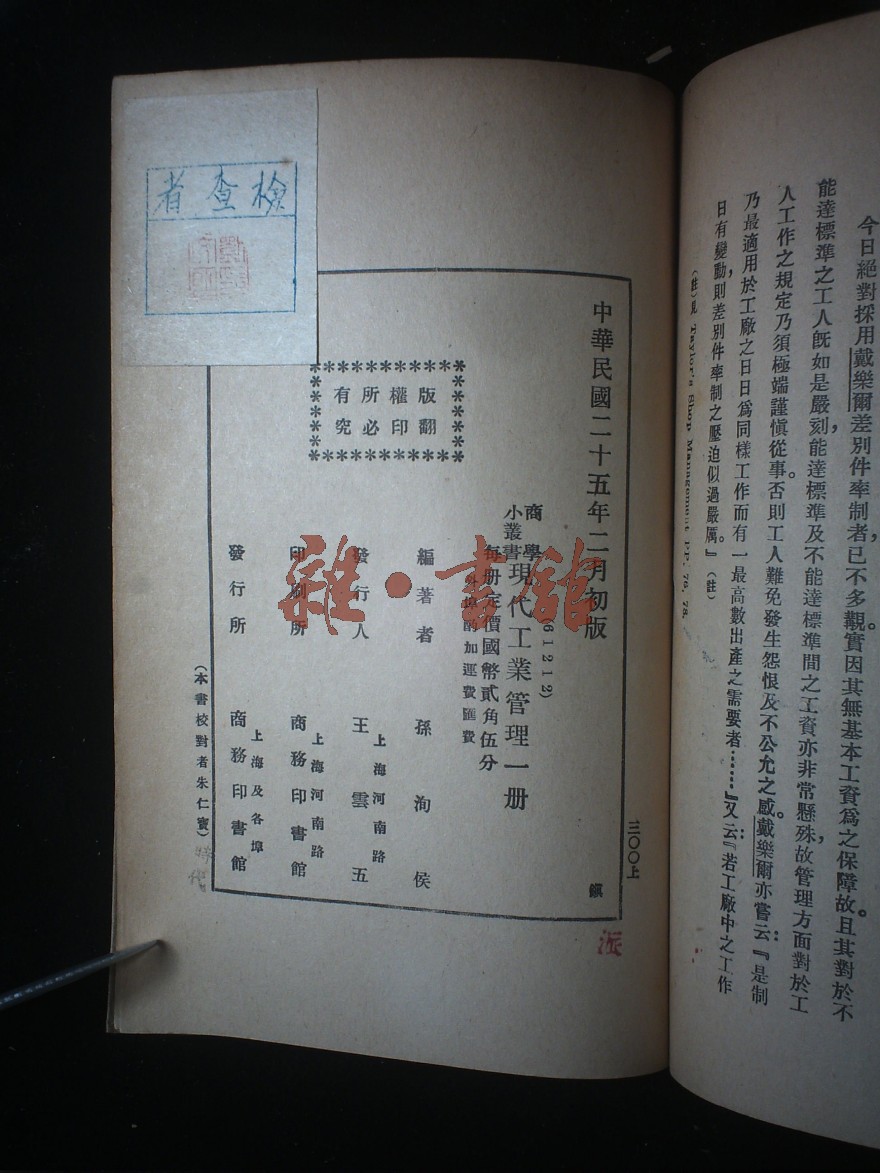 今日絕對採用戴樂爾差別件率制者，已不多觀。實因其無基本工資爲之保障故。且其對於不
能達標準之工人旣如是嚴刻，能達標準及不能達標準間之工資亦非常懸殊，故管理方面對於工
人工作之規定乃須極端謹愼從事。否則工人難免發生怨恨及不公允之感。戴樂爾亦嘗云：『是制
乃最適用於工廠之日日爲同樣工作而有一最高數出產之需要者……』又云：『若工廠中之工作
日有變動，則差別件率制之壓迫似過嚴厲。』（註）
（註）見 Taylor's Shop Management PP. 76, 78.
檢查者
中華民國二十五年二月初版
三〇〇上
商學小叢書
現代工業管理一册
(61212)
每册定價國幣貳角伍分
外埠酌加運費匯費
版權所有
翻印必究
編著者 孫洵侯
發行人 王雲五
上海河南路
印刷所 商務印書館
上海河南路
發行所 商務印書館
上海及各埠
（本書校對者朱仁寶）
鎭
雜·書館